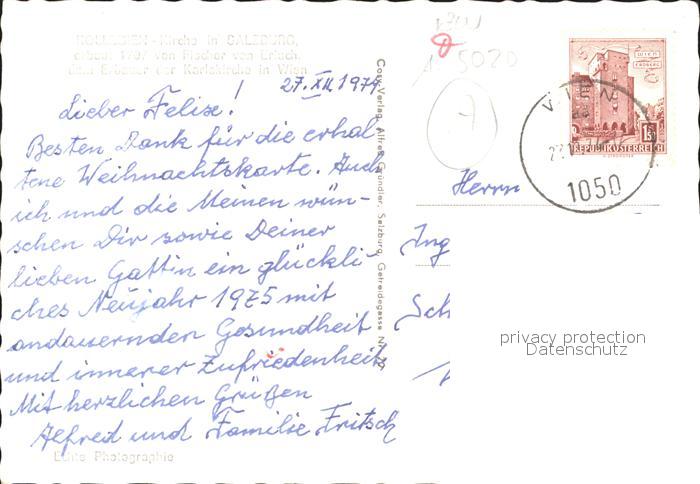 KOLLEGIEN-Kirche in SALZBURG,
erbaut 1707 von Fischer von Erlach,
dem Erbauer der Karlskirche in Wien
27.XII.1974
Lieber Felix!
Besten Dank für die erhal-
tene Weihnachtskarte. Auch
ich und die Meinen wün-
schen Dir sowie Deiner
lieben Gattin ein glückli-
ches Neujahr 1975 mit
andauernden Gesundheit
und innerer Zufriedenheit
Mit herzlichen Grüßen
Alfred und Familie Fritsch
Echte Photographie
Cosy-Verlag, Alfred Gründler, Salzburg, Getreidegasse
5020
7
WIEN
ERDBERG
1.50
REPUBLIK ÖSTERREICH
WIEN
1050
Herrn
Ing
Sch
privacy protection
Datenschutz